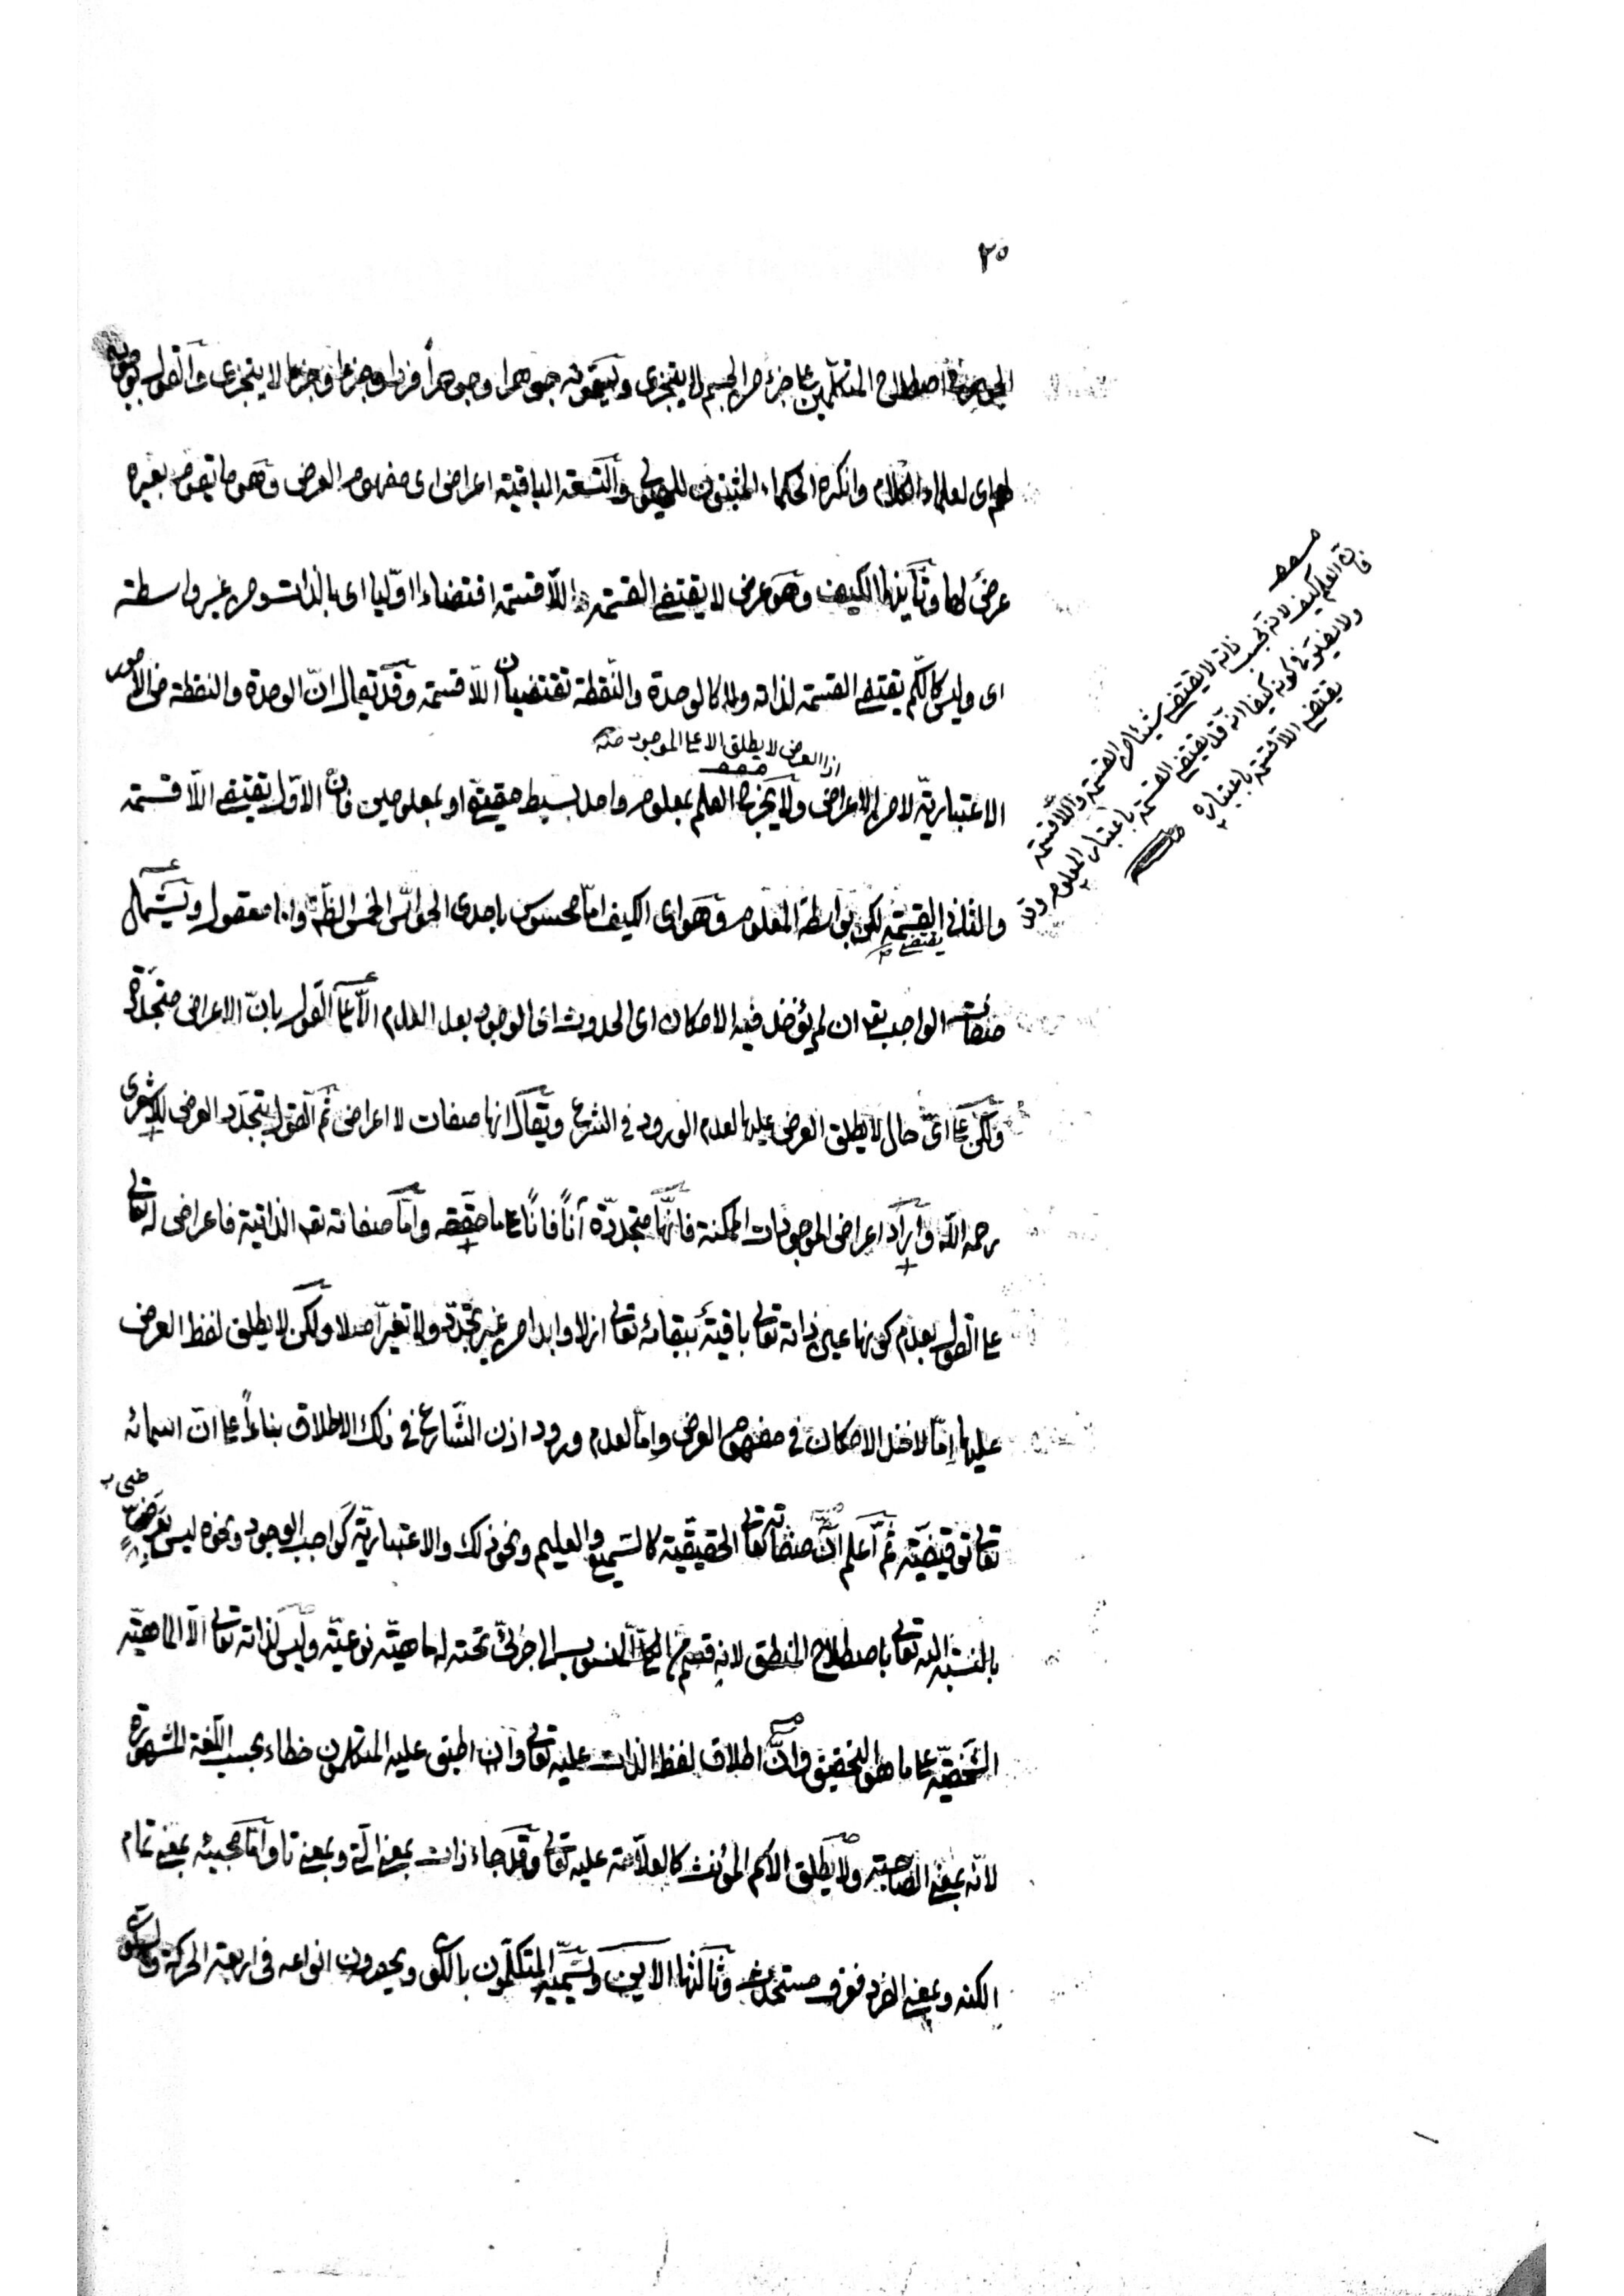 ٢٥
الجوهر في اصطلاح المتكلمين على جزء من الجسم لا يتجزى ويسمونه جوهرا وجوهراً فردا وجزءا وجزءا لا يتجزى والقول بوجوده
لهم اى لعلماء الكلام وانكره الحكماء المثبتون للهيولى والتسعة الباقية اعراض اى مفهوم العرض وهو ما يقوم بغيره
عرضىٌ لها وثانيها الكيف وهو عرض لا يقتضى القسمة واللاقسمة اقتضاءا اوّليا اى بالذات ومن غير واسطة
اى وليس كالكم يقتضى القسمة لذاته ولا كالوحدة والنقطة تقتضيان اللاقسمة وقد يقال انّ الوحدة والنقطة من الامور
اذ العرض لا يطلق الا على الموجود منه
الاعتباريّة لا من الاعراض ولا يخرج العلم بمعلوم واحد بسيط حقيقة او بمعلومين فان الاوّل يقتضى اللاقسمة
والثانى يقتضى القسمة لكن بواسطة المعلوم وهو اى الكيف امّا محسوس باحدى الحواسّ الخمس الظاهرة واما معقول ويشمل
صفات الواجب تع ان لم يؤخذ فيه الامكان اى الحدوث اى الوجود بعد العدم الّا على القول بانّ الاعراض متجدّدة
ولكن على اىّ حال لا يطلق العرض عليها لعدم الورود فى الشرع ويقال انها صفات لا اعراض ثم القول بتجدّد العرض للاشعرى
رحمه اللّه واراد اعراض الموجودات الممكنة فانّها متجددّة آناً فاناً على ما حققه وامّا صفاته تع الذاتية فاعراض له تعالى
على القول بعدم كونها عين ذاته تعالى باقية ببقائه تعالى ازلا وابدا من غير تجدّد ولا تغيّر اصلا ولكن لا يطلق لفظ العرض
عليها امّا لاخذ الامكان فى مفهوم العرض وإمّا لعدم ورود اذن الشّارع فى ذلك الاطلاق بناءاً على انّ اسمائه
تعالى توقيفيّة ثمّ اعلم انّ صفاته تعالى الحقيقيّة كالسّميع والعليم ونحو ذلك والاعتباريّة كواجب الوجود ونحوه ليس بعرضىّ
بالنسبة اليه تعالى باصطلاح المنطق لانه قسم من الكلّىّ المنسوب الى جزئىّ تحته له ماهيّة نوعيّة وليس لذاته تعالى الّا الماهيّة
الشّخصيّة على ما هو التحقيق وانّ اطلاق لفظ الذات عليه تعالى وان اطبق عليه المتكلمون خطاء بحسب اللّغة المشهورة
لانّه بمعنى الصّاحبة ولا يطلق الاسم المؤنث كالعلّامة عليه تعالى وقد جاء ذات بمعنى الّتى وبمعنى تا وامّا مجيئه بمعنى تمام
الكنه وبمعنى الفرد فعرف مستحدث وثالثها الاين ويسمّيه المتكلّمون بالكون ويحصرون انواعه فى اربعة الحركة والسكون
فان العلم كيف لانه بحسب ذاته لا يقتضى شيئا من القسمة واللاقسمة
ولا يضر فى كونه كيفا انه قد يقتضى القسمة باعتبار المعلوم وقد
يقتضى اللاقسمة باعتباره منه